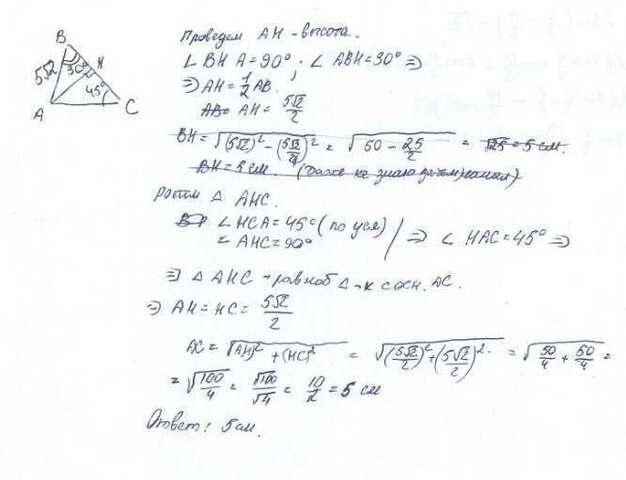 Проведем AH - высота.
B
5√2
30°
H
45°
A
C
∠BHA = 90°, ∠ABH = 30° ⇒
⇒ AH = 1/2 AB.
AB = AH = 5√2/2
BH = √(5√2)² - (5√2/4)² = √50 - 25/2 = √25 = 5 см.
BH = 5 см. (Даже не знаю зачем)
△ AHC.
∠HCA = 45° (по усл)
= AHC = 90° | ⇒ ∠HAC = 45° ⇒
⇒ △ AHC - равноб △-к с осн. AC.
⇒ AH = HC = 5√2/2
AC = √(AH)² + (HC)² = √(5√2/2)² + (5√2/2)² = √50/4 + 50/4 =
= √100/4 = √100/√4 = 10/2 = 5 см
Ответ: 5 см.